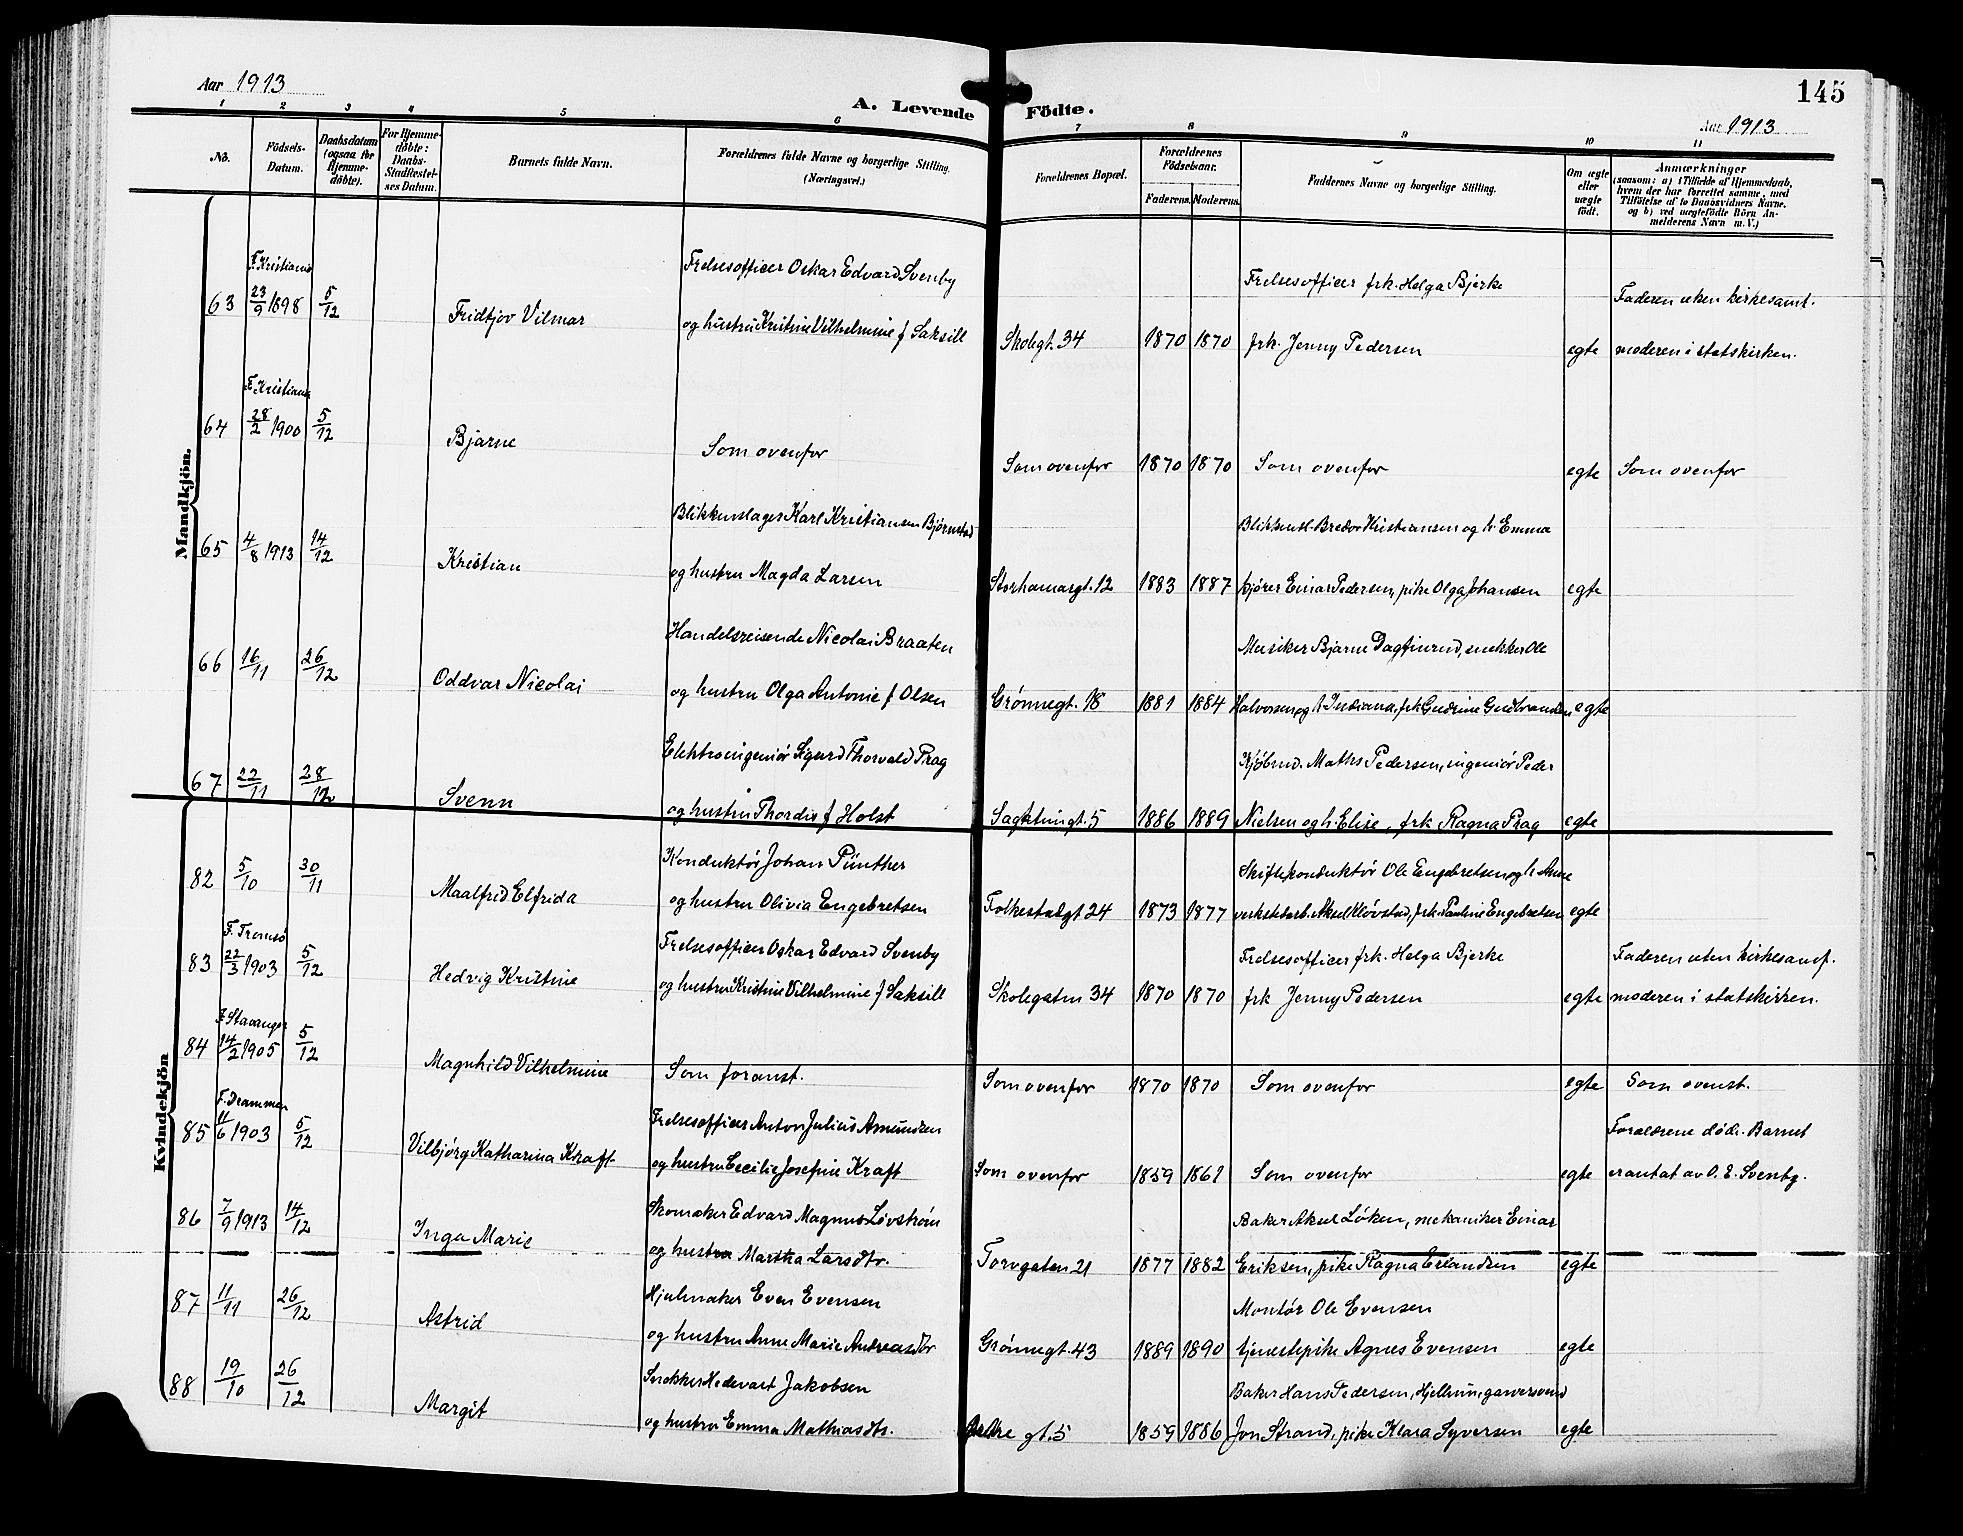 Aar 1913
145
A. Levende Födte.
Aar 1913
1 2 3 4 5 6 7 8 9 10 11
No.
Födsels-Datum.
Daabsdatum (ogsaa for Hjemme-döbte).
For Hjemme-döbte: Daabs-Stadfæstel-ses Datum.
Barnets fulde Navn.
Forældrenes fulde Navne og borgerlige Stilling. (Næringsvei.)
Forældrenes Bopæl.
Forældrenes Födselsaar.
Faderens. Moderens.
Faddernes Navne og borgerlige Stilling.
Om ægte eller uægte födt.
Anmærkninger
(saasom: a) i Tilfælde af Hjemmedaab,
hvem der har forrettet samme, med
Tilföielse af to Daabsvidners Navne,
og b) ved uægtefödte Börn An-
melderens Navn m. V.)
Mandkjön.
F. Kristiania
Frelsesofficer Oskar Edvard Svenby
Frelsesofficer frk. Helga Bjerke
Faderen uten kirkesamf.
63 23/9 1898 5/12 Fridtjov Vilmar
og hustru Kristine Vilhelmine f Saksill Skolegt. 34 1870 1870 frk. Jenny Pedersen egte moderen i statskirken.
F. Kristiania
64 28/2 1900 5/12 Bjarne Som ovenfor Som ovenfor 1870 1870 Som ovenfor egte Som ovenfor
Blikkenslager Karl Kristiansen Bjørnstad
Blikkensl. Bredov Kristiansen og h. Emma
65 4/8 1913 14/12 Kristian
og hustru Magda Larsen Storhamargt. 12 1883 1887 kjører Einar Pedersen, pike Olga Johansen egte
Handelsreisende Nicolai Braaten
Musiker Bjarne Dagfinrud, snekker Ole
66 16/11 26/12 Oddvar Nicolai
og hustru Olga Antonie f Olsen Grønnegt. 18 1881 1884 Halvorsen og h. Indiana, frk Gudrine Gudbrandsen egte
Elektroingeniør Sigurd Thorvald Prag
Kjøbmd. Maths Pedersen, ingeniør Peder
67 22/11 28/12 Svenn
og hustru Thordis f Holst Sagktungt. 5 1886 1889 Nielsen og h. Elise, frk Ragna Prag egte
Kvindekjön
Konduktør Johan Pünther
Skiftekonduktør Ole Engebretsen og h. Anne
82 5/10 30/11 Maalfrid Elfrida
og hustru Olivia Engebretsen Folkestadgt 24 1873 1877 verkstedarb. Aksel Kløvstad, frk. Pauline Engebretsen egte
F. Tromsø
Frelsesofficer Oskar Edvard Svenby
Frelsesofficer frk. Helga Bjerke
Faderen uten kirkesamf.
83 22/3 1903 5/12 Hedvig Kristine
og hustru Kristine Vilhelmine f Saksill Skolegaten 34 1870 1870 frk Jenny Pedersen egte moderen i statskirken.
F. Stavanger
84 14/2 1905 5/12 Magnhild Vilhelmine Som foranst. Som ovenfor 1870 1870 Som ovenfor egte Som ovenst.
F. Drammen
Frelsesofficer Anton Julius Amundsen
Forældrene døde. Barnet
85 11/6 1903 5/12 Vilbjørg Katharina Kraft
og hustru Cecilie Josefine Kraft Som ovenfor 1859 1861 Som ovenfor egte er antat av O. E. Svenby.
Skomaker Edvard Magnus Løvstrøm
Baker Aksel Løken, mekaniker Einar
86 7/9 1913 14/12 Inga Marie
og hustru Martha Larsdtr. Torvgaten 21 1877 1882 Eriksen, pike Ragna Erlandsen egte
Hjulmaker Even Evensen
Montør Ole Evensen
87 11/11 26/12 Astrid
og hustru Anne Marie Andreasdtr Grønnegt. 43 1889 1890 tjenestepike Agnes Evensen egte
Snekker Hedevart Jakobsen
Baker Hans Pedersen, Hjellum, garversvend
88 19/10 26/12 Margit
og hustru Emma Mathiasdtr. gt. 5 1859 1886 Jon Strand, pike Klara Syversen egte